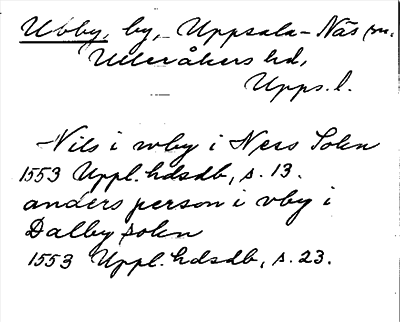 Ubby, by, Uppsala-Näs sn.
Ulleråkers hd,
Upps. l.
Nils i wby i Ness Sokn
1553 Uppl. hdsdb, s. 13.
anders person i vby i
Dalby sokn
1553 Uppl. hdsdb, s. 23.